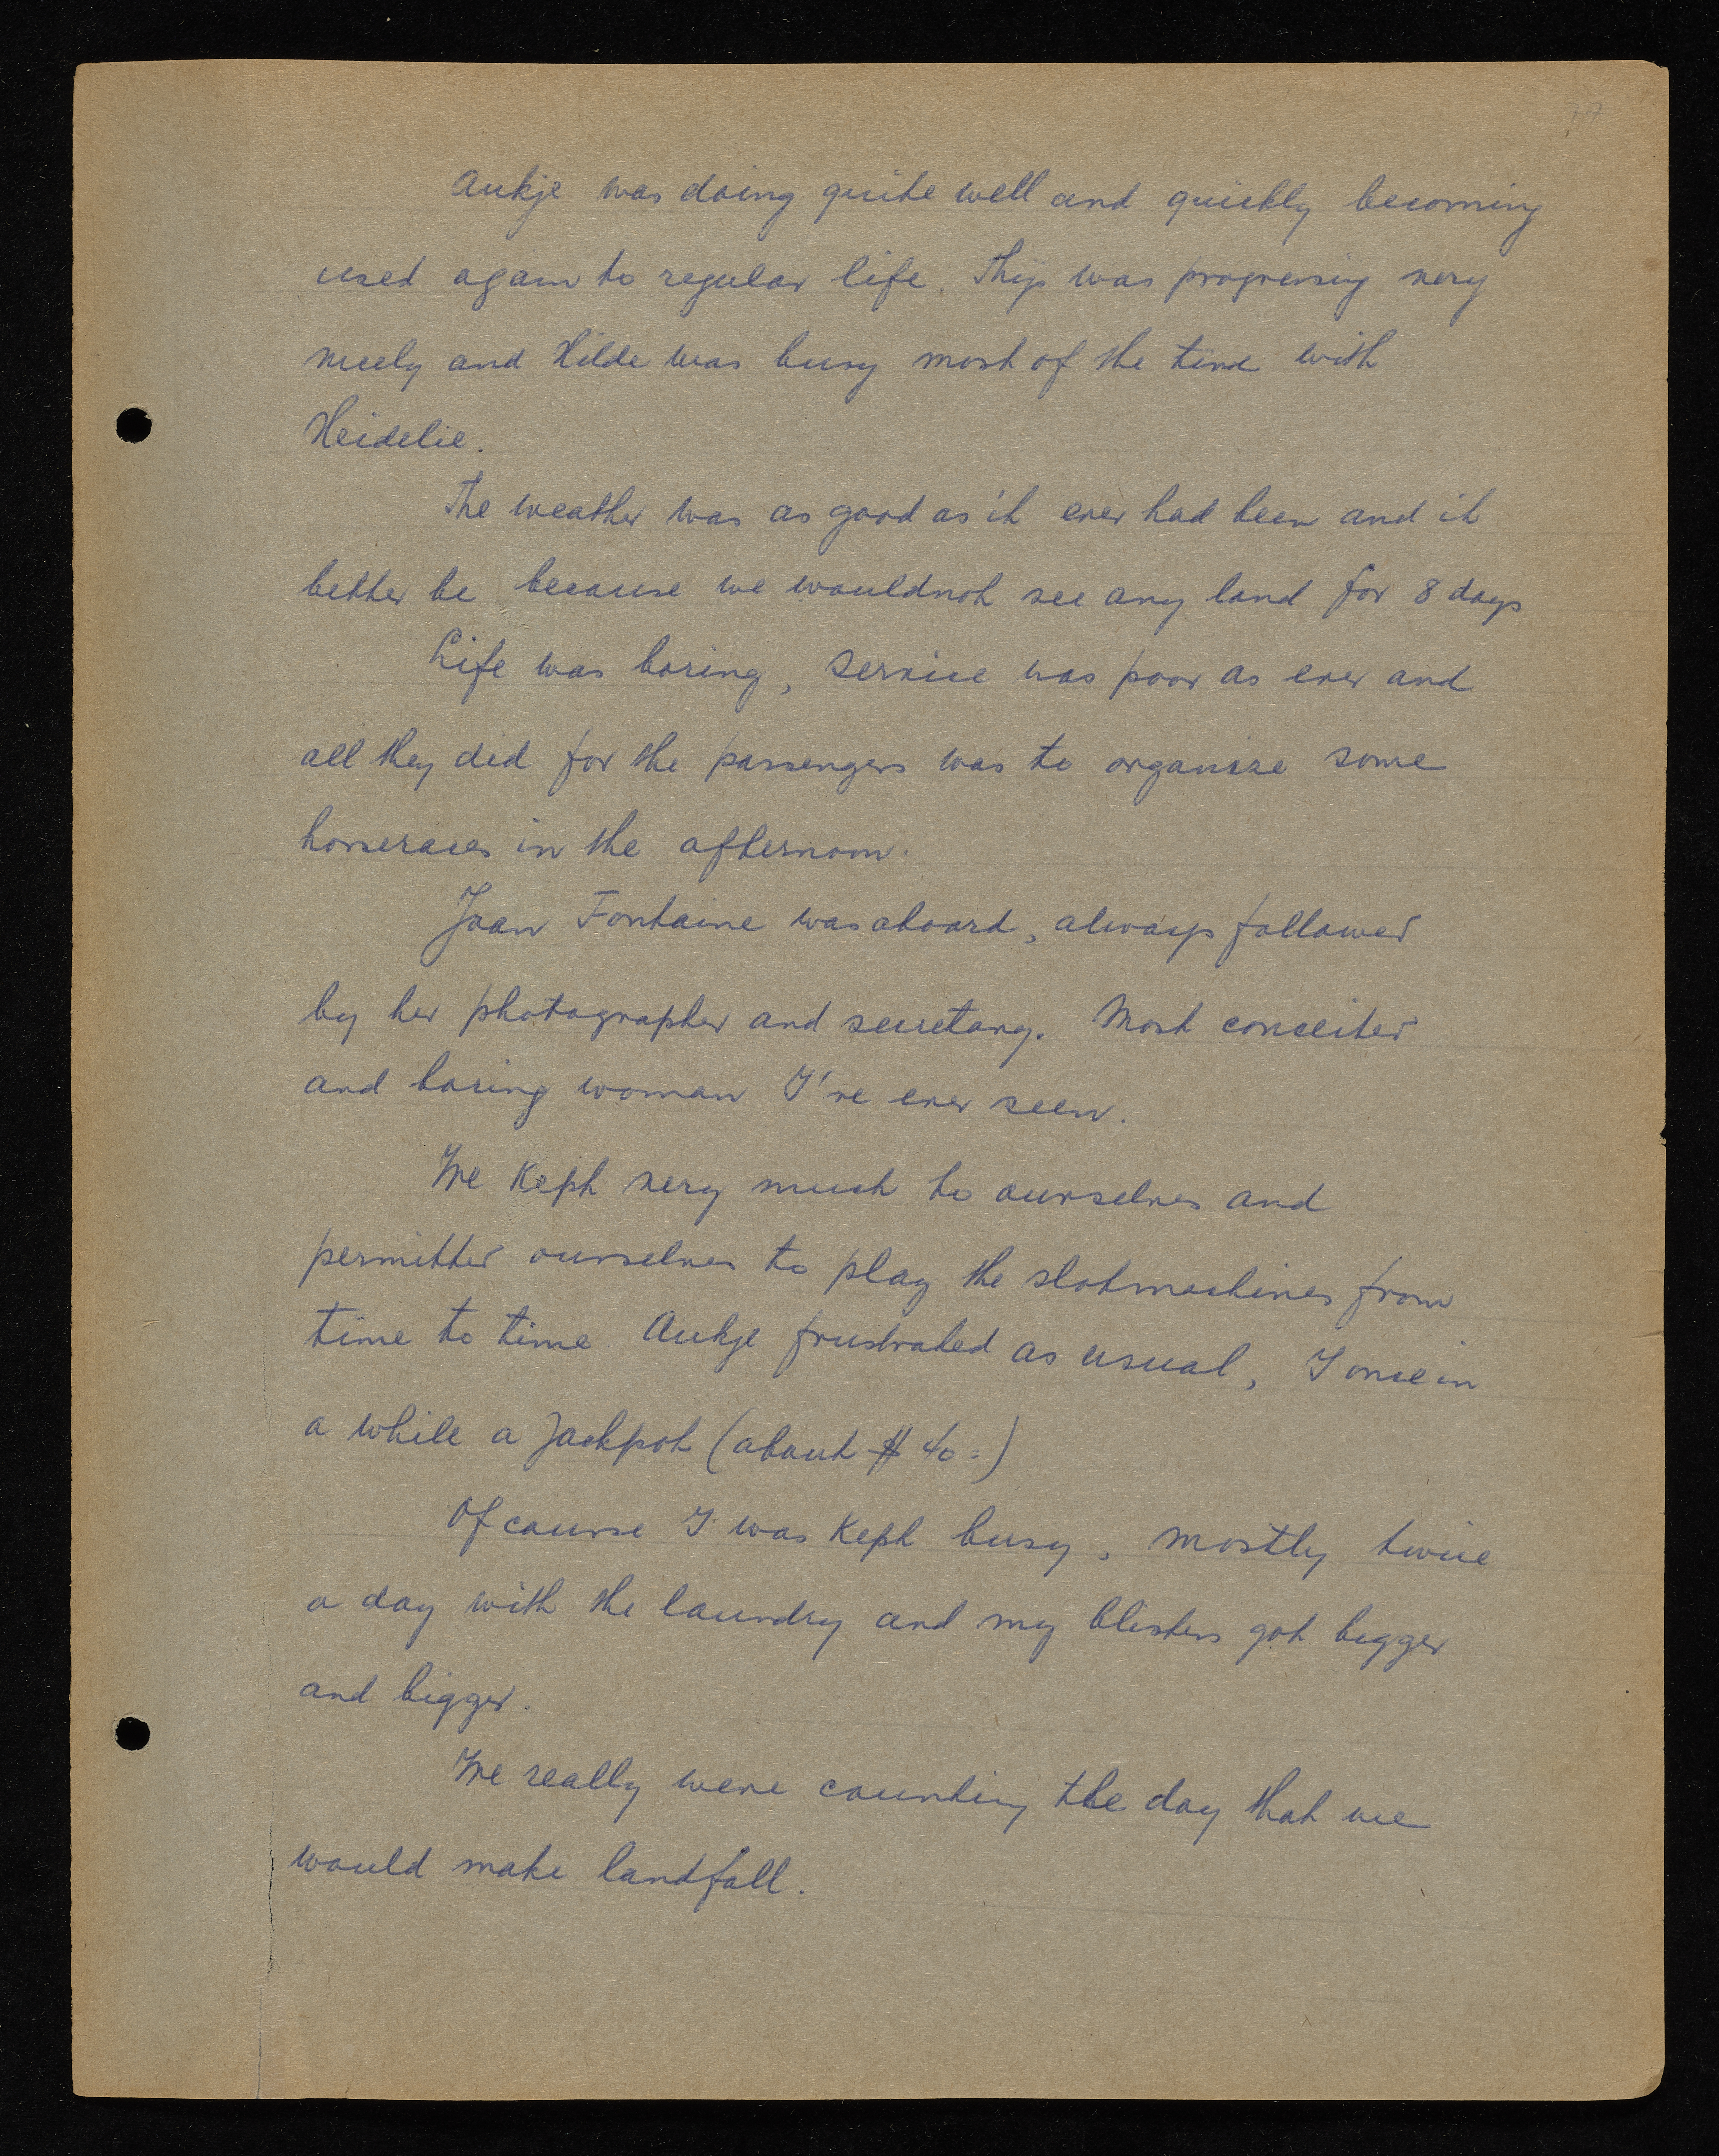 Aukje was doing quite well and quickly becoming
used again to regular life. Thijs was progressing very
nicely and Hilde was busy most of the time with
Heidelie.
The weather was as good as it ever had been and it
better be because we wouldnot see any land for 8 days
Life was boring, service was poor as ever and
all they did for the passengers was to organize some
horseraces in the afternoon.
Joan Fontaine was aboard, always followed
by her photographer and secretary. Most conceited
and boring woman I've ever seen.
We kept very much to ourselves and
permitted ourselves to play the slotmachines from
time to time Aukje frustrated as usual, I once in
a while a Jackpot (about $ 40=)
Of course I was kept busy, mostly twice
a day with the laundry and my blisters got bigger
and bigger.
We really were counting the day that we
would make landfall.